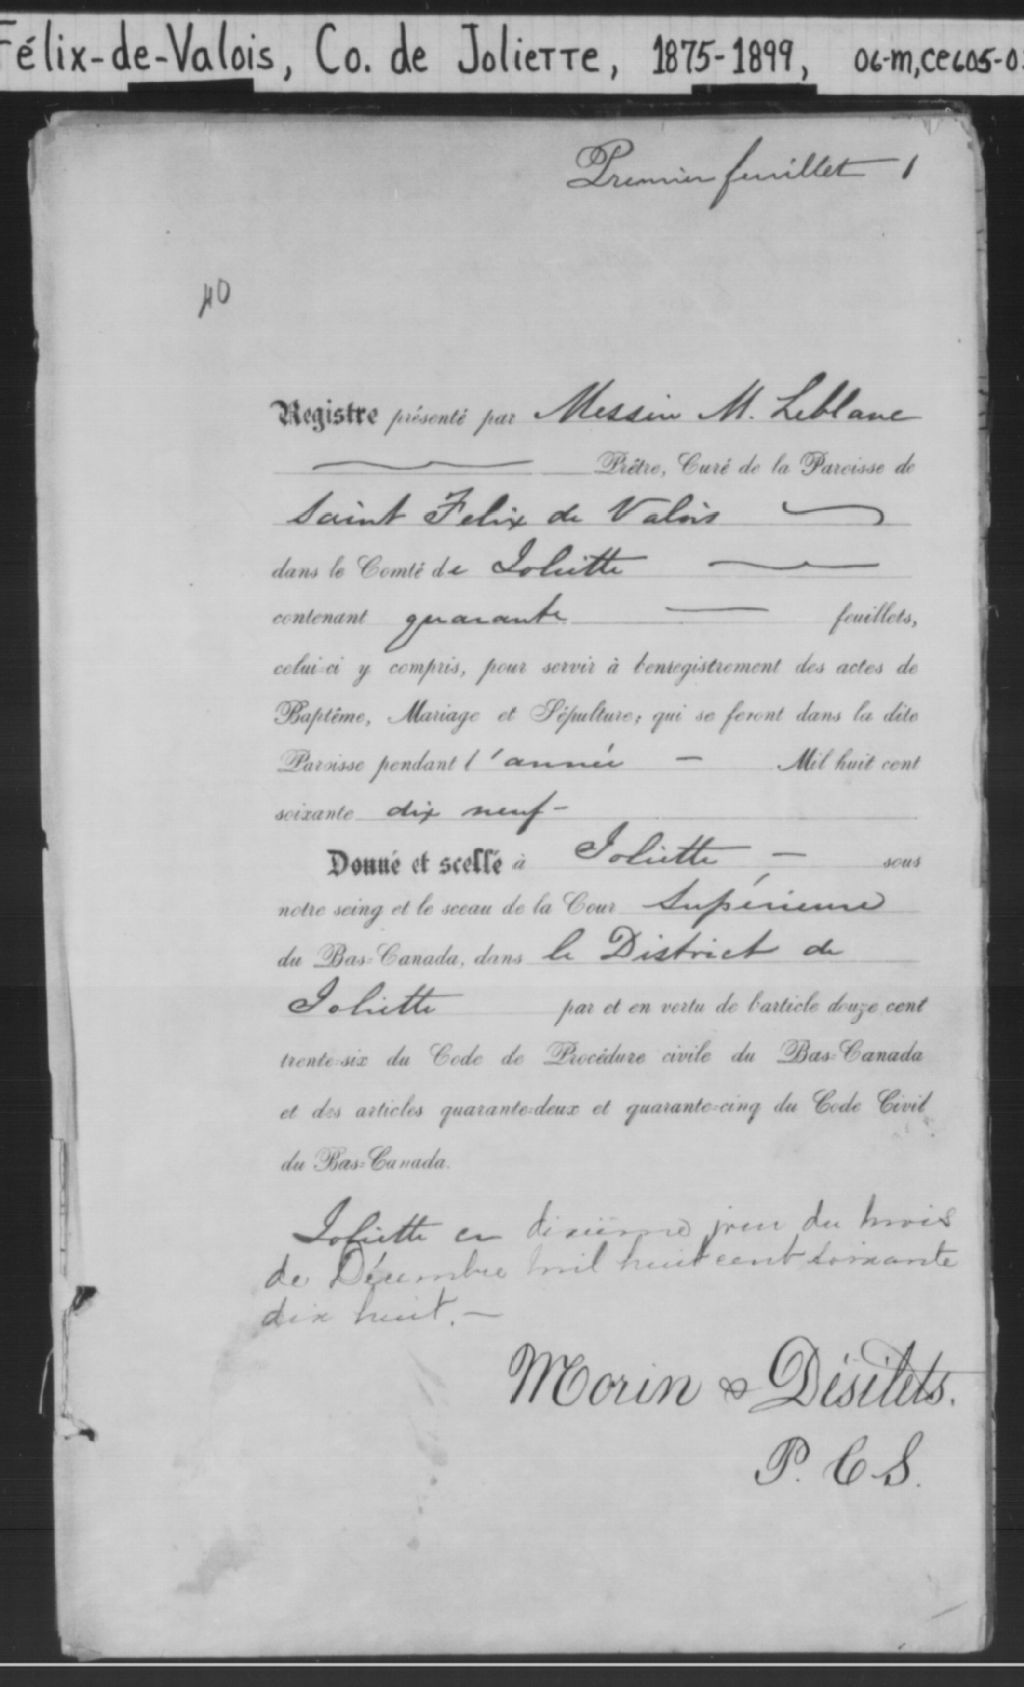 Félix-de-Valois, Co. de Joliette, 1875-1899, 06-m,ce605-0
Premier feuillet 1
40
Registre présenté par Messire M. Leblanc
Prêtre, Curé de la Paroisse de
Saint Felix de Valois
dans le Comté de Joliette
contenant quarante feuillets,
celui-ci y compris, pour servir à l'enregistrement des actes de
Baptême, Mariage et Sépulture, qui se feront dans la dite
Paroisse pendant l'année - Mil huit cent
soixante dix neuf -
Donné et scellé à Joliette - sous
notre seing et le sceau de la Cour Supérieure
du Bas-Canada, dans le District de
Joliette par et en vertu de l'article douze cent
trente-six du Code de Procédure civile du Bas-Canada
et des articles quarante-deux et quarante-cinq du Code Civil
du Bas-Canada.
Joliette ce dixième jour du mois
de Décembre mil huit cent soixante
dix huit. -
Morin & Désilets.
P. C. S.